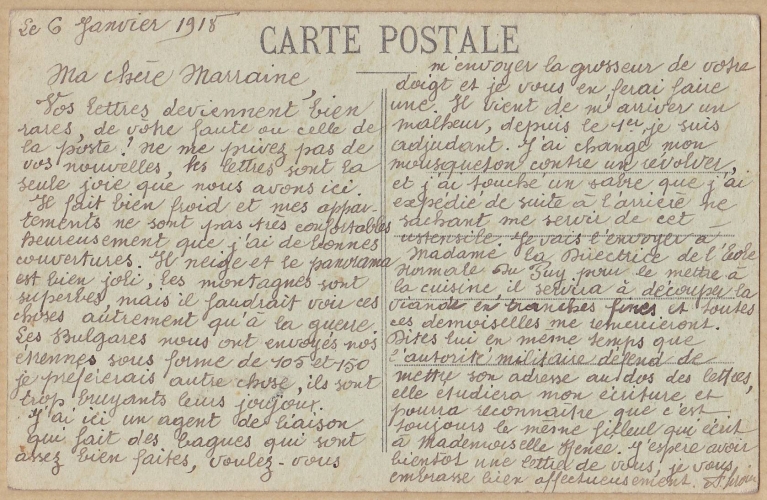 Le 6 Janvier 1918
CARTE POSTALE
Ma chère Marraine,
Vos lettres deviennent bien
rares, de votre faute ou celle de
la poste? ne me privez pas de
vos nouvelles, les lettres sont la
seule joie que nous avons ici.
Il fait bien froid et mes appar-
tements ne sont pas très confortables
heureusement que j'ai de bonnes
couvertures. Il neige et le panorama
est bien joli, les montagnes sont
superbes, mais il faudrait voir ces
choses autrement qu'à la guerre.
Les Bulgares nous ont envoyés nos
étrennes sous forme de 105 et 150
je préférerais autre chose, ils sont
trop bruyants leurs joujoux.
J'ai ici un agent de liaison
qui fait des bagues qui sont
assez bien faites, voulez-vous
m'envoyer la grosseur de votre
doigt et je vous en ferai faire
une. Il vient de m'arriver un
malheur, depuis le 1er je suis
adjudant. J'ai changé mon
mousqueton contre un révolver,
et j'ai touché un sabre que j'ai
expédié de suite à l'arrière ne
sachant me servir de cet
ustensile. Je vais l'envoyer à
Madame la Directrice de l'Ecole
Normale du Puy pour le mettre à
la cuisine, il servira à découper la
viande en tranches fines et toutes
ces demoiselles me remercieront.
Dites lui en même temps que
l'autorité militaire défend de
mettre son adresse au dos des lettres,
elle étudiera mon écriture et
pourra reconnaître que c'est
toujours le même filleul qui écrit
à Mademoiselle Renée. J'espère avoir
bientôt une lettre de vous, je vous
embrasse bien affectueusement.